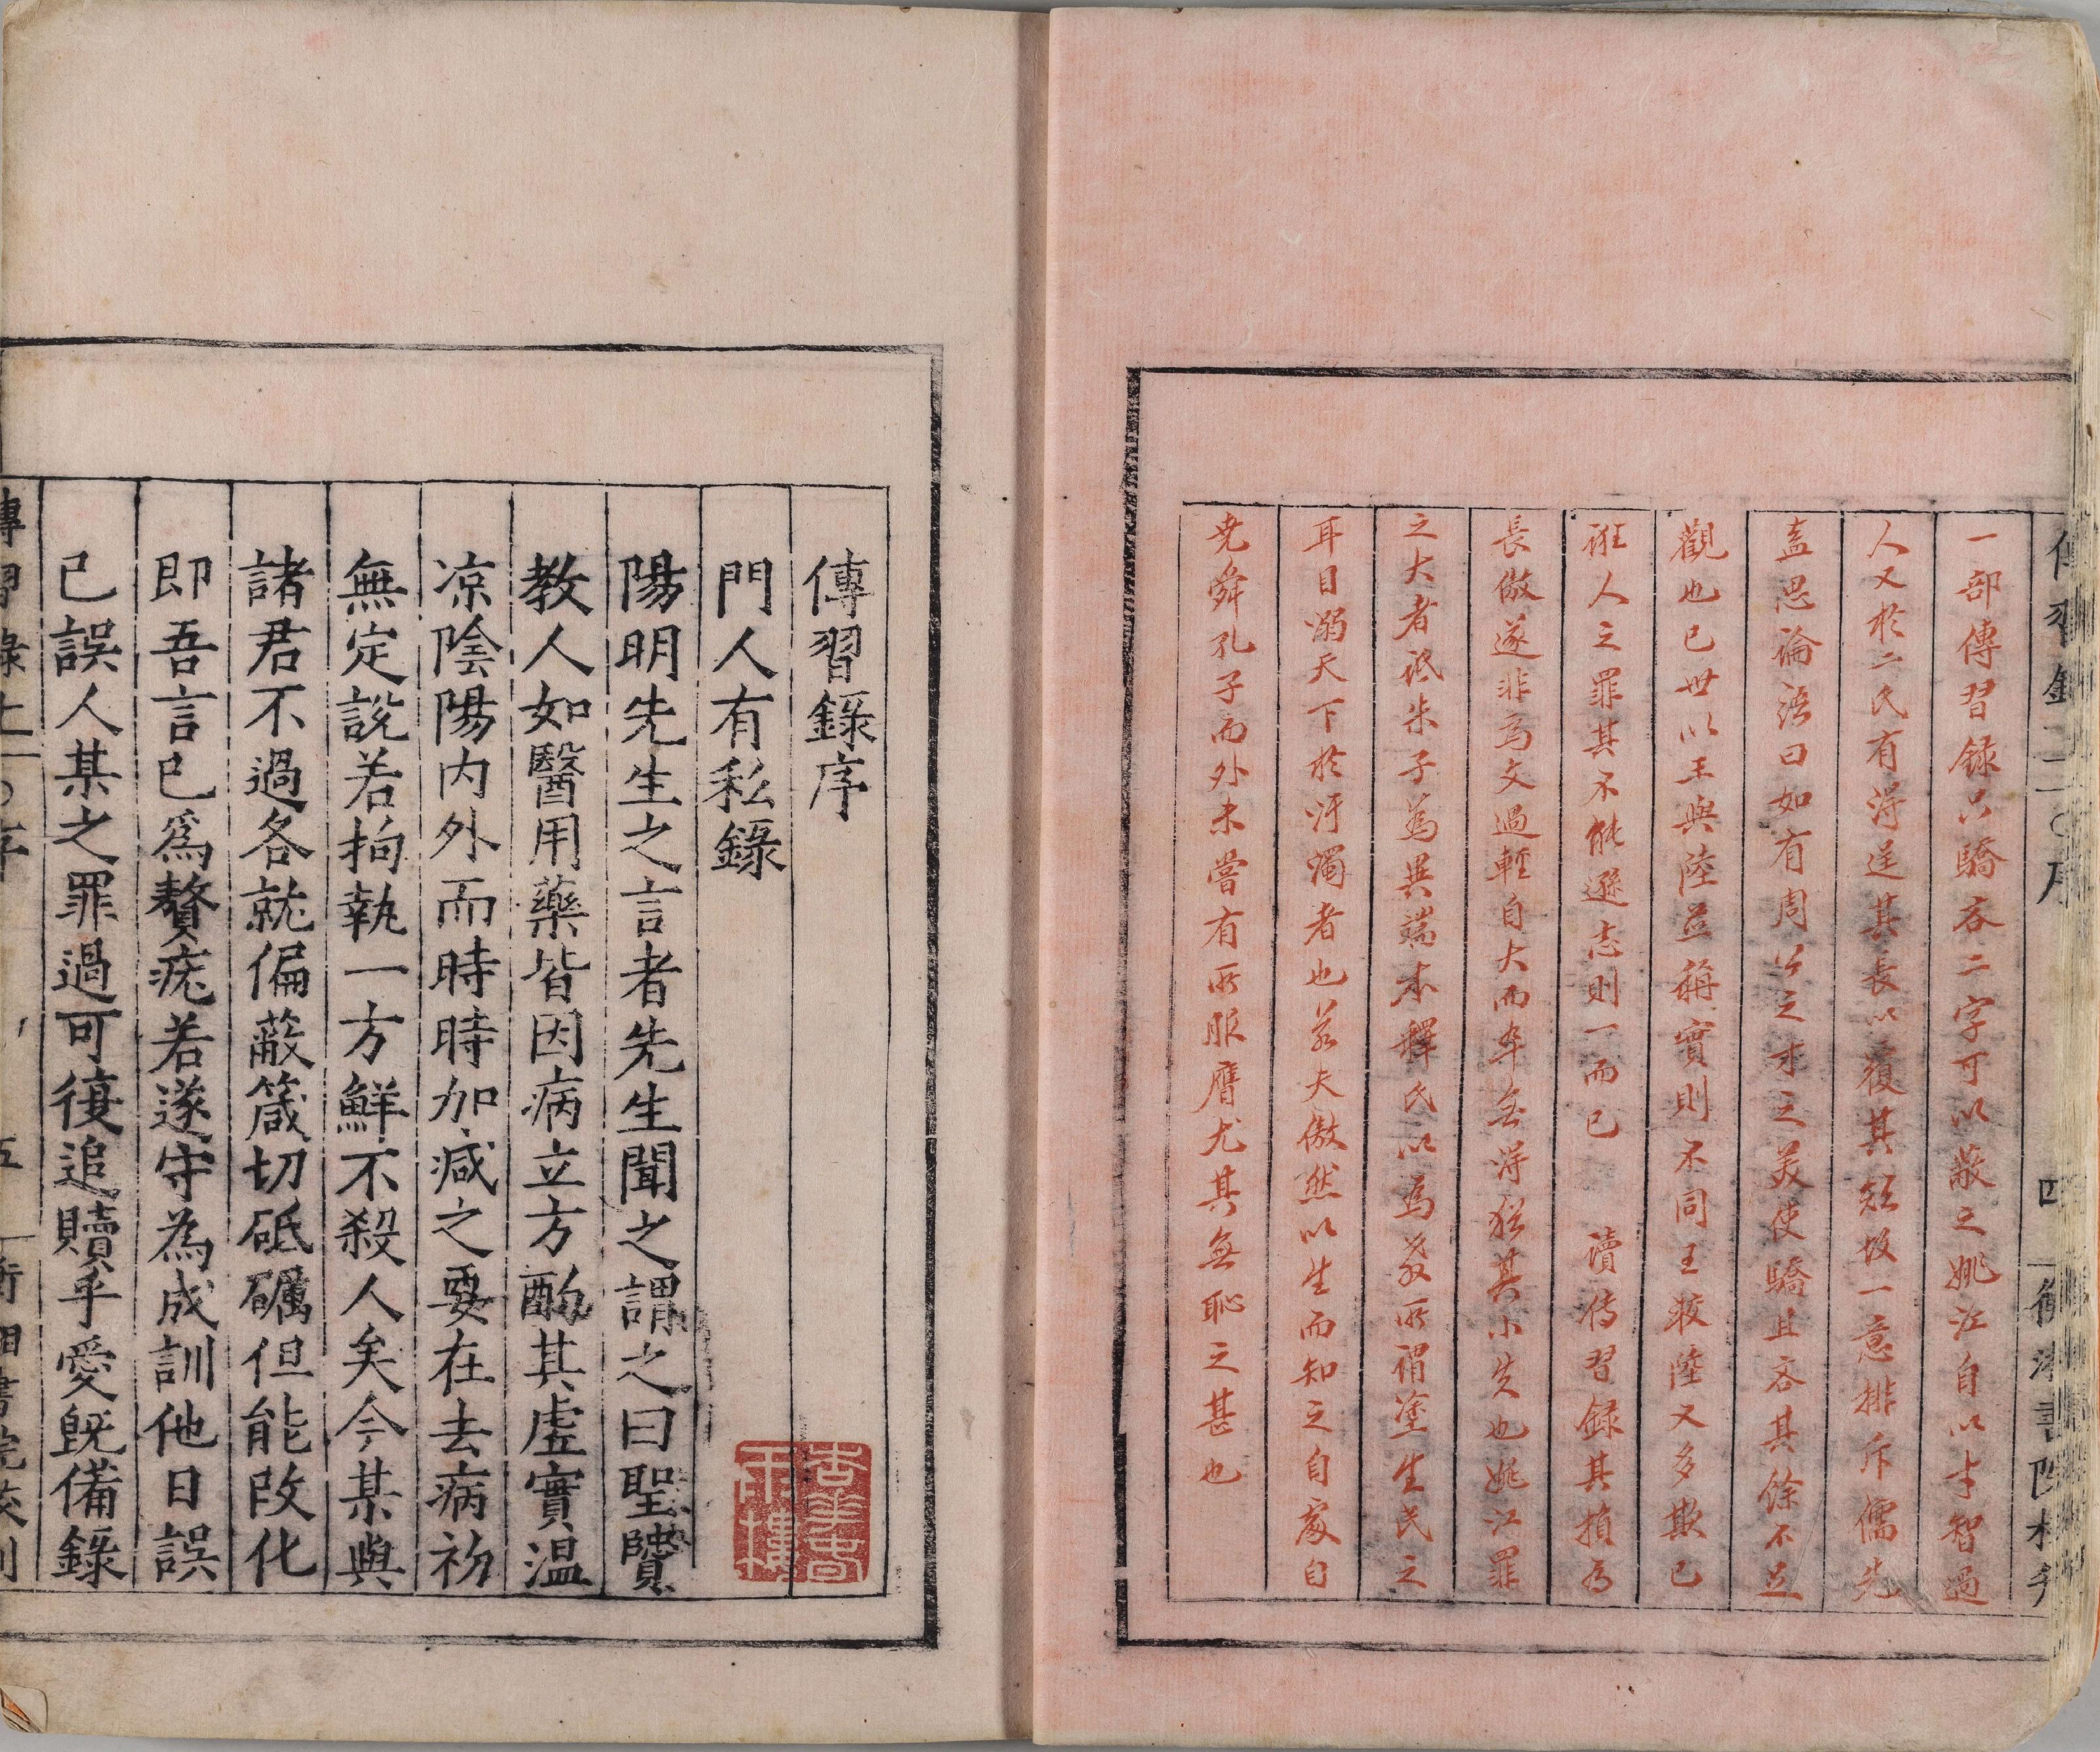 傳習錄
序
四
一部傳習録只驕吝二字可以蔽之姚江自以才智過
人又於二氏有得逞其長以覆其短故一意排斥儒先
蓋思論語曰如有周公之才之美使驕且吝其餘不足
觀也已世以王與陸並稱實則不同王較陸又多欺己
誑人之罪其不能遜志則一而已　讀传習録其損为
長傲遂非為文過輕自大而卒無得猶其小失也姚江罪
之大者詆朱子為異端本釋氏以為教所謂塗生民之
耳目溺天下於汙濁者也若夫傲然以生而知之自處自
堯舜孔子而外未嘗有所服膺尤其無恥之甚也
傳習錄序
門人有私錄
陽明先生之言者先生聞之謂之曰聖賢
教人如醫用藥皆因病立方酌其虛實温
凉陰陽内外而時時加减之要在去病初
無定說若拘執一方鮮不殺人矣今某與
諸君不過各就偏蔽箴切砥礪但能改化
即吾言已爲贅疣若遂守為成訓他日誤
已誤人某之罪過可復追贖乎愛既備錄
傳習錄上
序
五